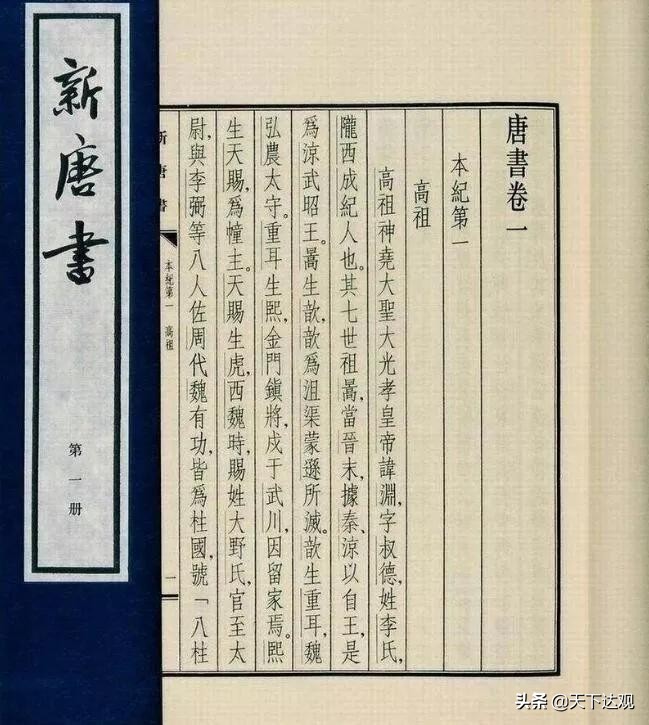 新唐書
第一册
唐書卷一
本紀第一
高祖
高祖神堯大聖大光孝皇帝諱淵,字叔德,姓李氏,
隴西成紀人也。其七世祖暠,當晉末,據秦、涼以自王,是
爲涼武昭王。暠生歆,歆爲沮渠蒙遜所滅。歆生重耳,魏
弘農太守。重耳生熙,金門鎮將,戍于武川,因留家焉。熙
生天賜,爲幢主。天賜生虎,西魏時,賜姓大野氏,官至太
尉,與李弼等八人佐周代魏有功,皆爲柱國,號「八柱
新唐書
本紀第一 高祖
一
头条 @天下达观